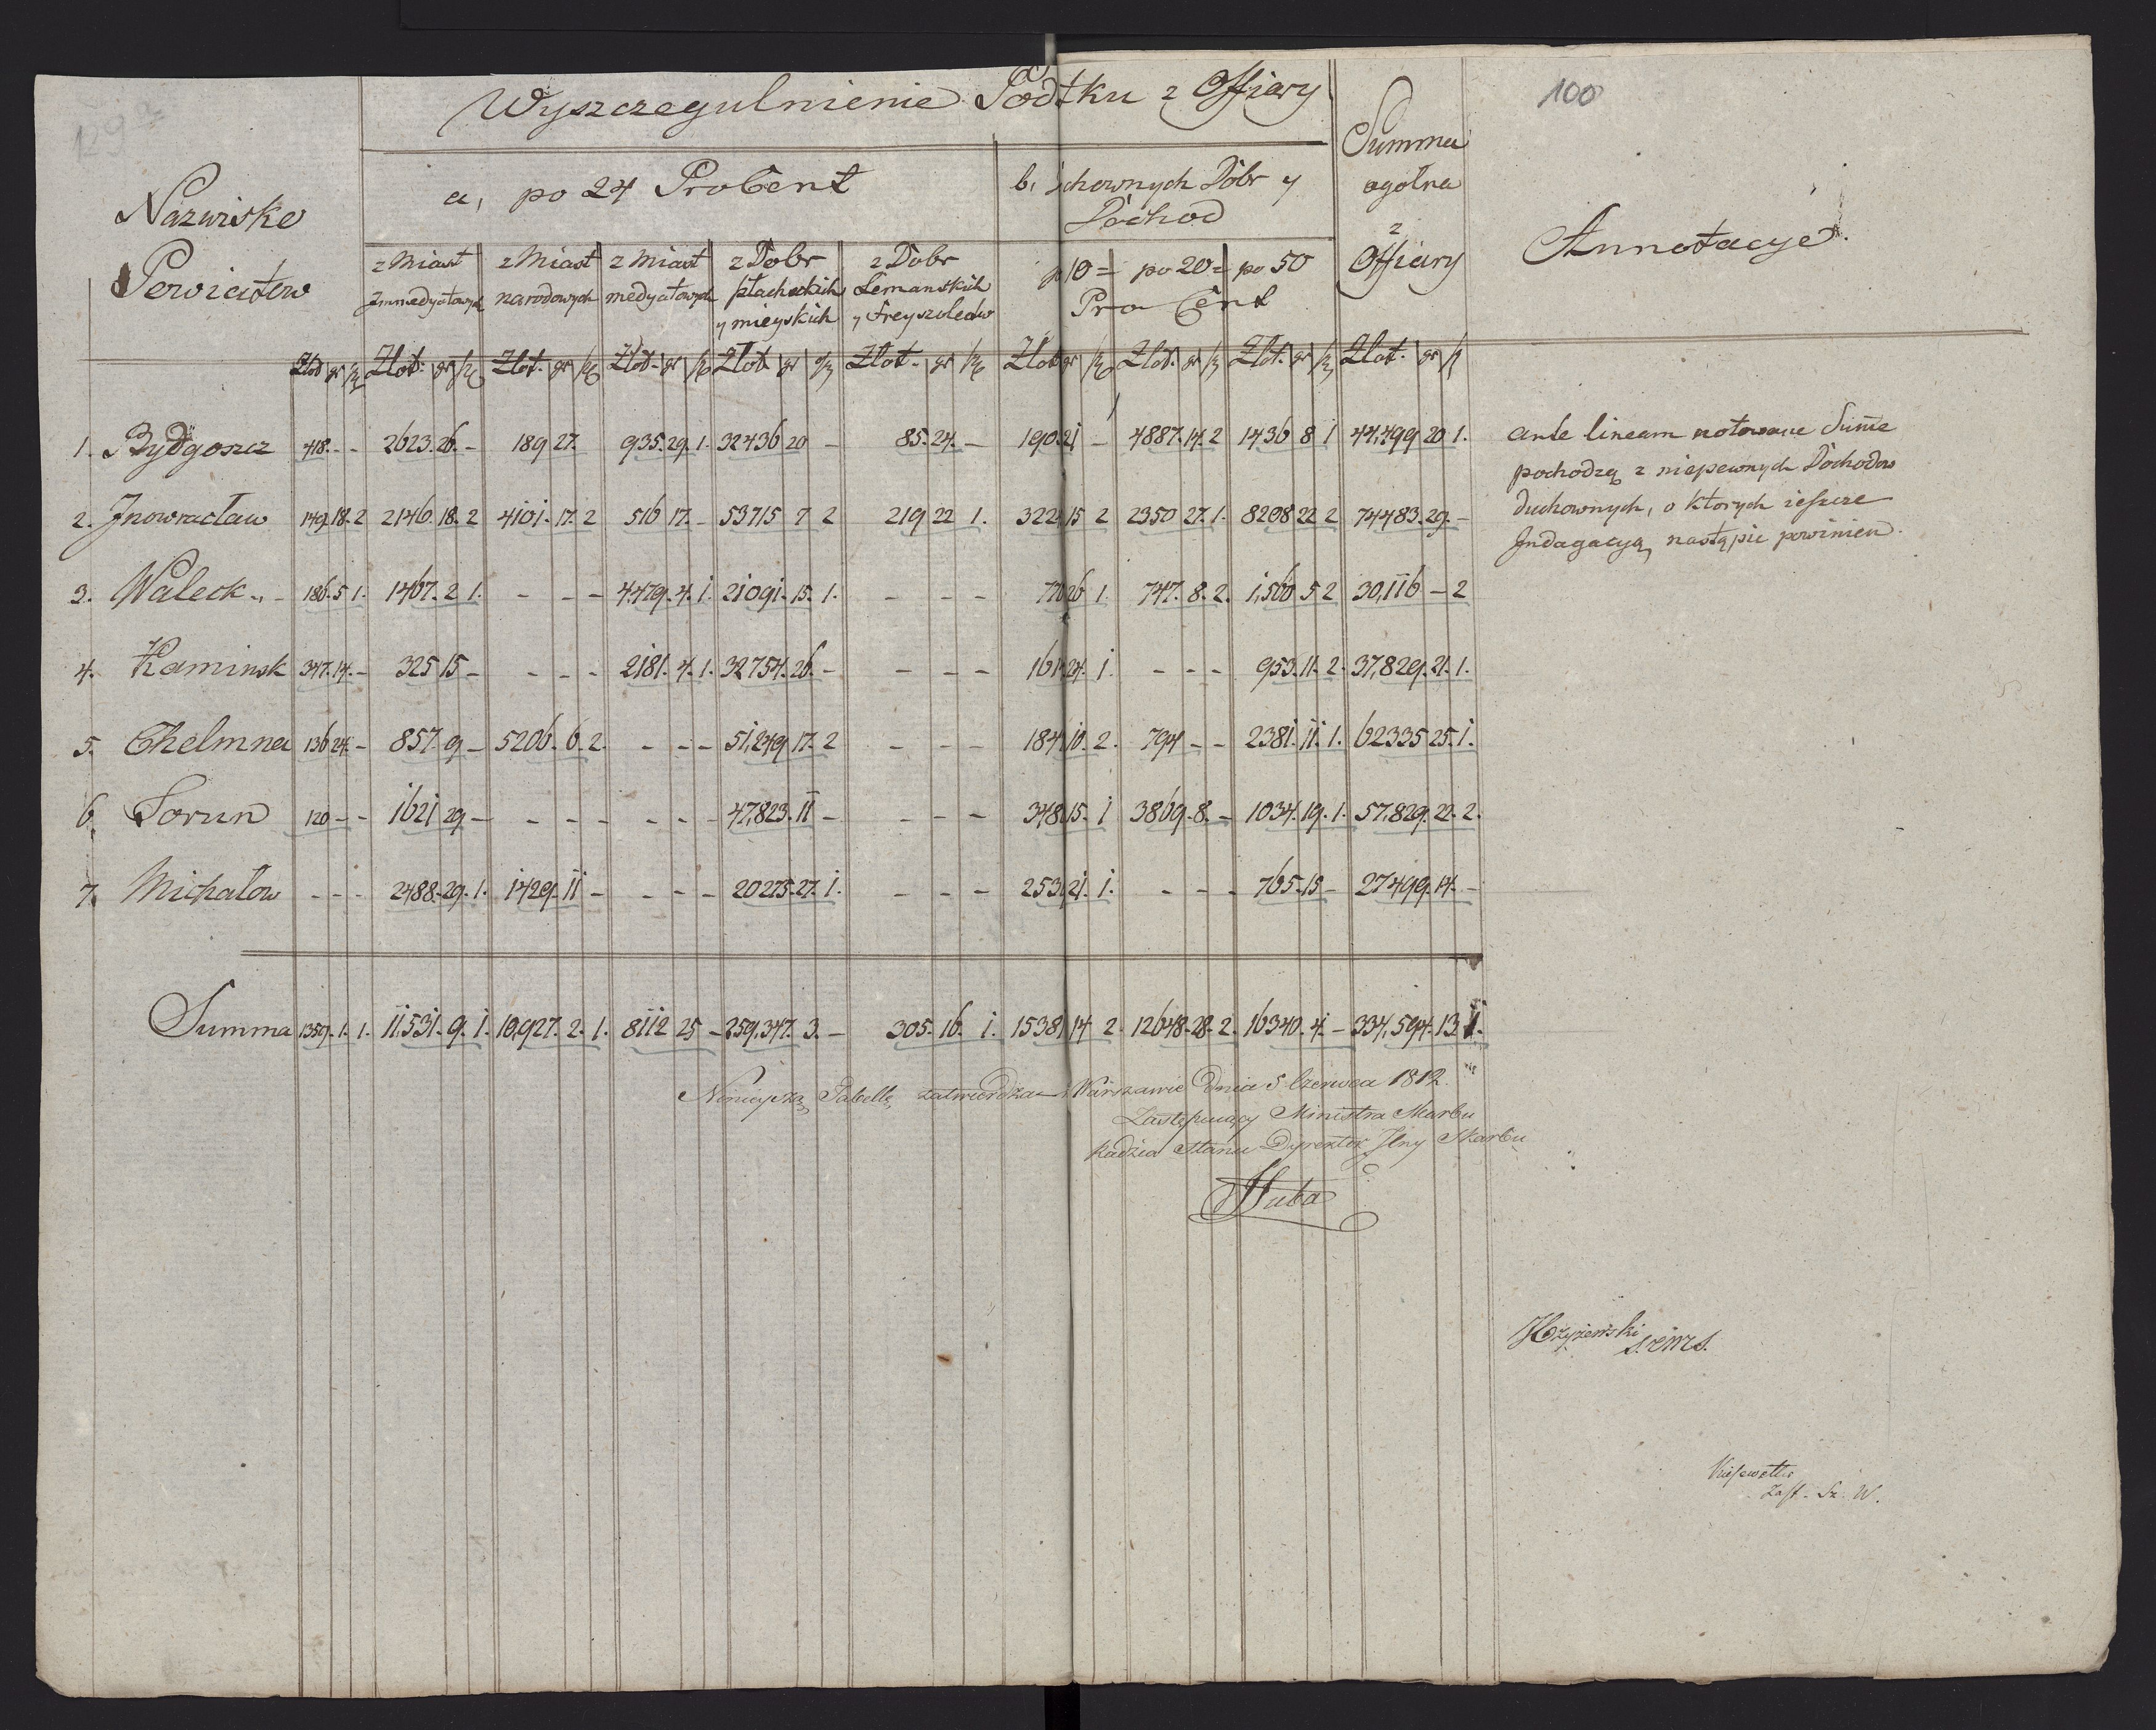 129
100
Wyszczegulnienie Podtku z Offiary
Nazwisko
Powiatow
a, po 24 ProCent
b, chownych Dóbr y
Dochod
Summa
ogolna
z
Offiary
Annotacye.
z Miast
Immedyatowych
z Miast
narodowych
z Miast
medyatowych
z Dobr
szlacheckich
y mieyskich
z Dobr
Lemanskich
y Freyszolcow
10 = po 20 = po 50
Pro Cent
Złot gr Złot. gr Złot. gr Złot. gr Złot. gr Złot. gr Złot gr Złot. gr Złot. gr Złot. gr
1. Bydgoszcz 418. - - 2623. 26. - 189 27. 935. 29. 1. 32436 20 - 85. 24. - 190. 21 - 4887. 14. 2 1436 8 1 44,499 20 1.
2. Jnowracław 149. 18. 2 2146. 18. 2 4101. 17. 2 516 17. - 53715 7 2 219 22 1. 322 15 2 2350 27. 1. 8208 22 2 74483. 29. -
3. Waleck - 186. 5 1. 1467. 2 1. - - - 4,479. 4. 1. 21091. 15. 1. - - - 770 26 1. 747. 8. 2. 1,560 5 2 30,116 - 2
4. Kaminsk 347. 14. - 325 15 - - - - 2181. 4. 1. 32754. 26. - - - - 1614 24. 1. - - - 953. 11. 2. 37,829. 21. 1.
5. Chelmna 136 24. - 857. 9 - 5206. 6. 2. - - - 51,249. 17. 2 - - - 1847 10. 2. 794 - - 2381. 11. 1. 62335 25. 1.
6. Torun 120 - - 1621 29 - - - - - - - 47,823. 11 - - - - 3481 15. 1 3869. 8. - 1034. 19. 1. 57,829. 22. 2.
7. Michałow - - - 2488. 29. 1. 1429. 11 - - - - 20275. 27. 1. - - - 2539 21. 1. - - - 765. 15 - 27499. 14. -
Summa 1359. 1. 1. 11,531. 9. 1. 10,927. 2. 1. 8112 25 - 259,347. 3. - 305. 16. 1. 1538 14 2. 12648. 28. 2. 16340. 4. - 334,594. 13 1.
ante lineam notowane Summe
pochodzą z niepewnych Dochodow
duchownych, o ktorych ieszcze
Jndagacyą nastąpic powinien.
Ninieyszą Tabellę zatwierdza Warszawie Dnia 5 Czerwca 1812.
Zastępuiący Ministra Skarbu
Radzca Stanu Dyrektor Jlny Skarbu
Zast. Sz. W.